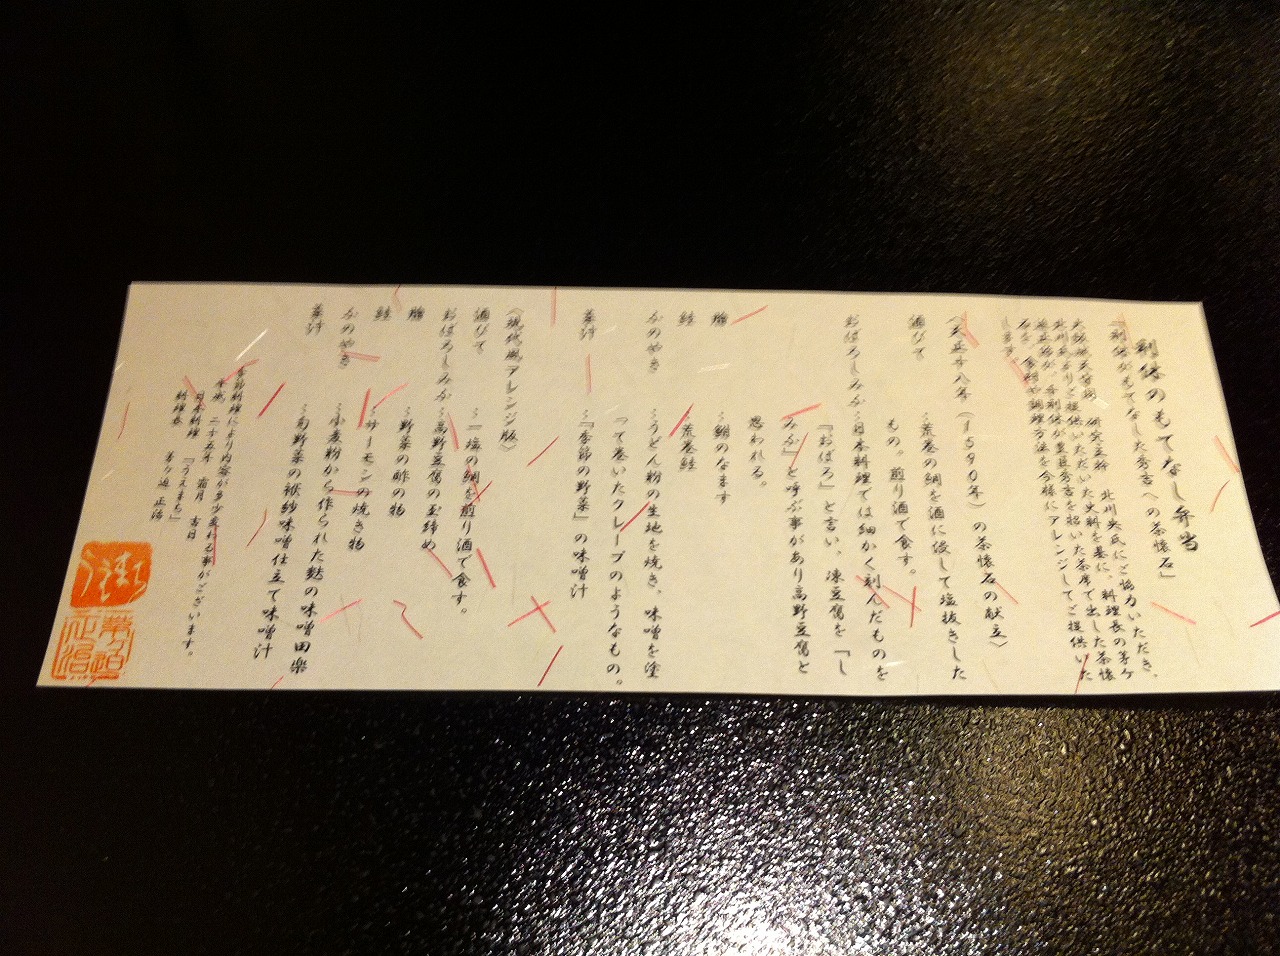 利休のもてなし弁当
『利休がもてなした秀吉への茶懐石』
研究主幹 北川央氏にご協力いただき、
北川央よりご提供いただいた史料を基に、料理長の茅ケ
迫正治が、千利休が豊臣秀吉を招いた茶席で出した茶懐
石を、食材や調理方法を今様にアレンジしてご提供いた
します。
〈天正十八年（1590年）の茶懐石の献立〉
酒びて ～荒巻の鯛を酒に浸して塩抜きした
もの。煎り酒で食す。
おぼろしみか～日本料理では細かく刻んだものを
「おぼろ」と言い、凍豆腐を「し
みか」と呼ぶ事があり高野豆腐と
思われる。
鱠 ～鯛のなます
鮭 ～荒巻鮭
ふのやき ～うどん粉の生地を焼き、味噌を塗
って巻いたクレープのようなもの。
菜汁 ～『季節の野菜』の味噌汁
〈現代風アレンジ版〉
酒びて ～一塩の鯛を煎り酒で食す。
おぼろしみか～高野豆腐の玉締め
鱠 ～野菜の酢の物
鮭 ～サーモンの焼き物
ふのやき ～小麦粉から作られた麩の味噌田楽
菜汁 ～旬野菜の袱紗味噌仕立て味噌汁
季節料理により内容が多少変わる事がございます。
平成 二十五年 霜月 吉日
日本料理 「うえまち」
料理長 茅ケ迫 正治